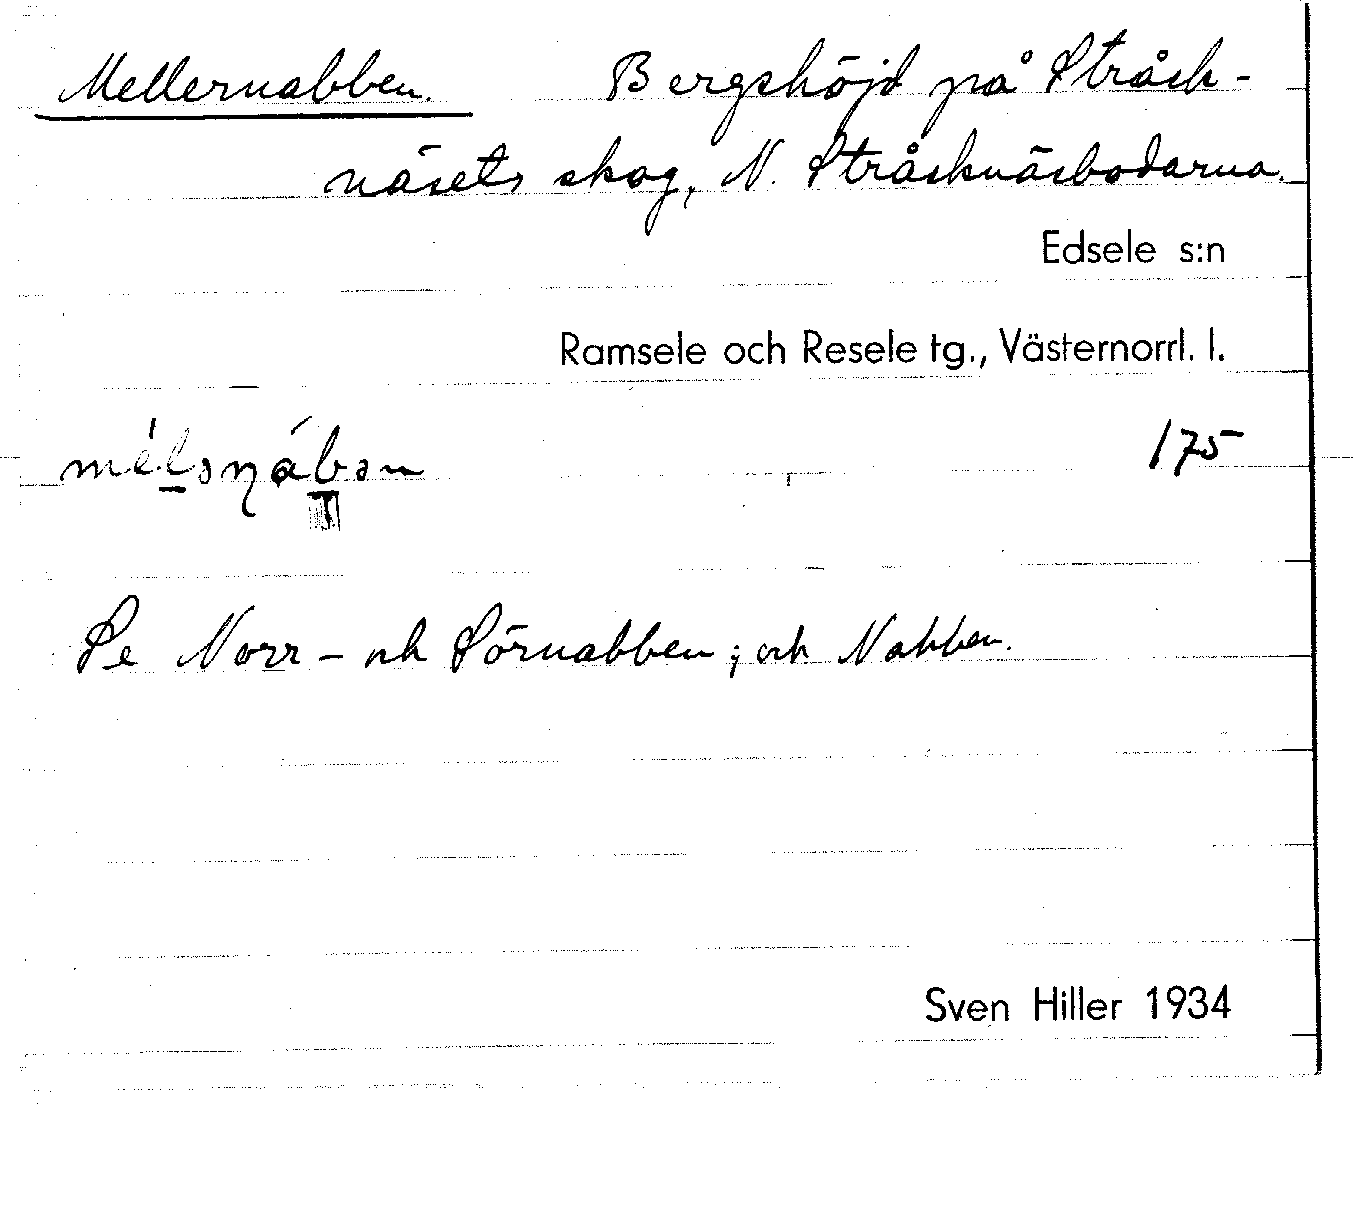 Mellernabben. Bergshöjd på Stråsk-
näsets skog, N. Stråsknäsbodarna.
Edsele s:n
Ramsele och Resele tg., Västernorrl. l.
175
Se Norr- och Sörnabben; och Nabben.
Sven Hiller 1934